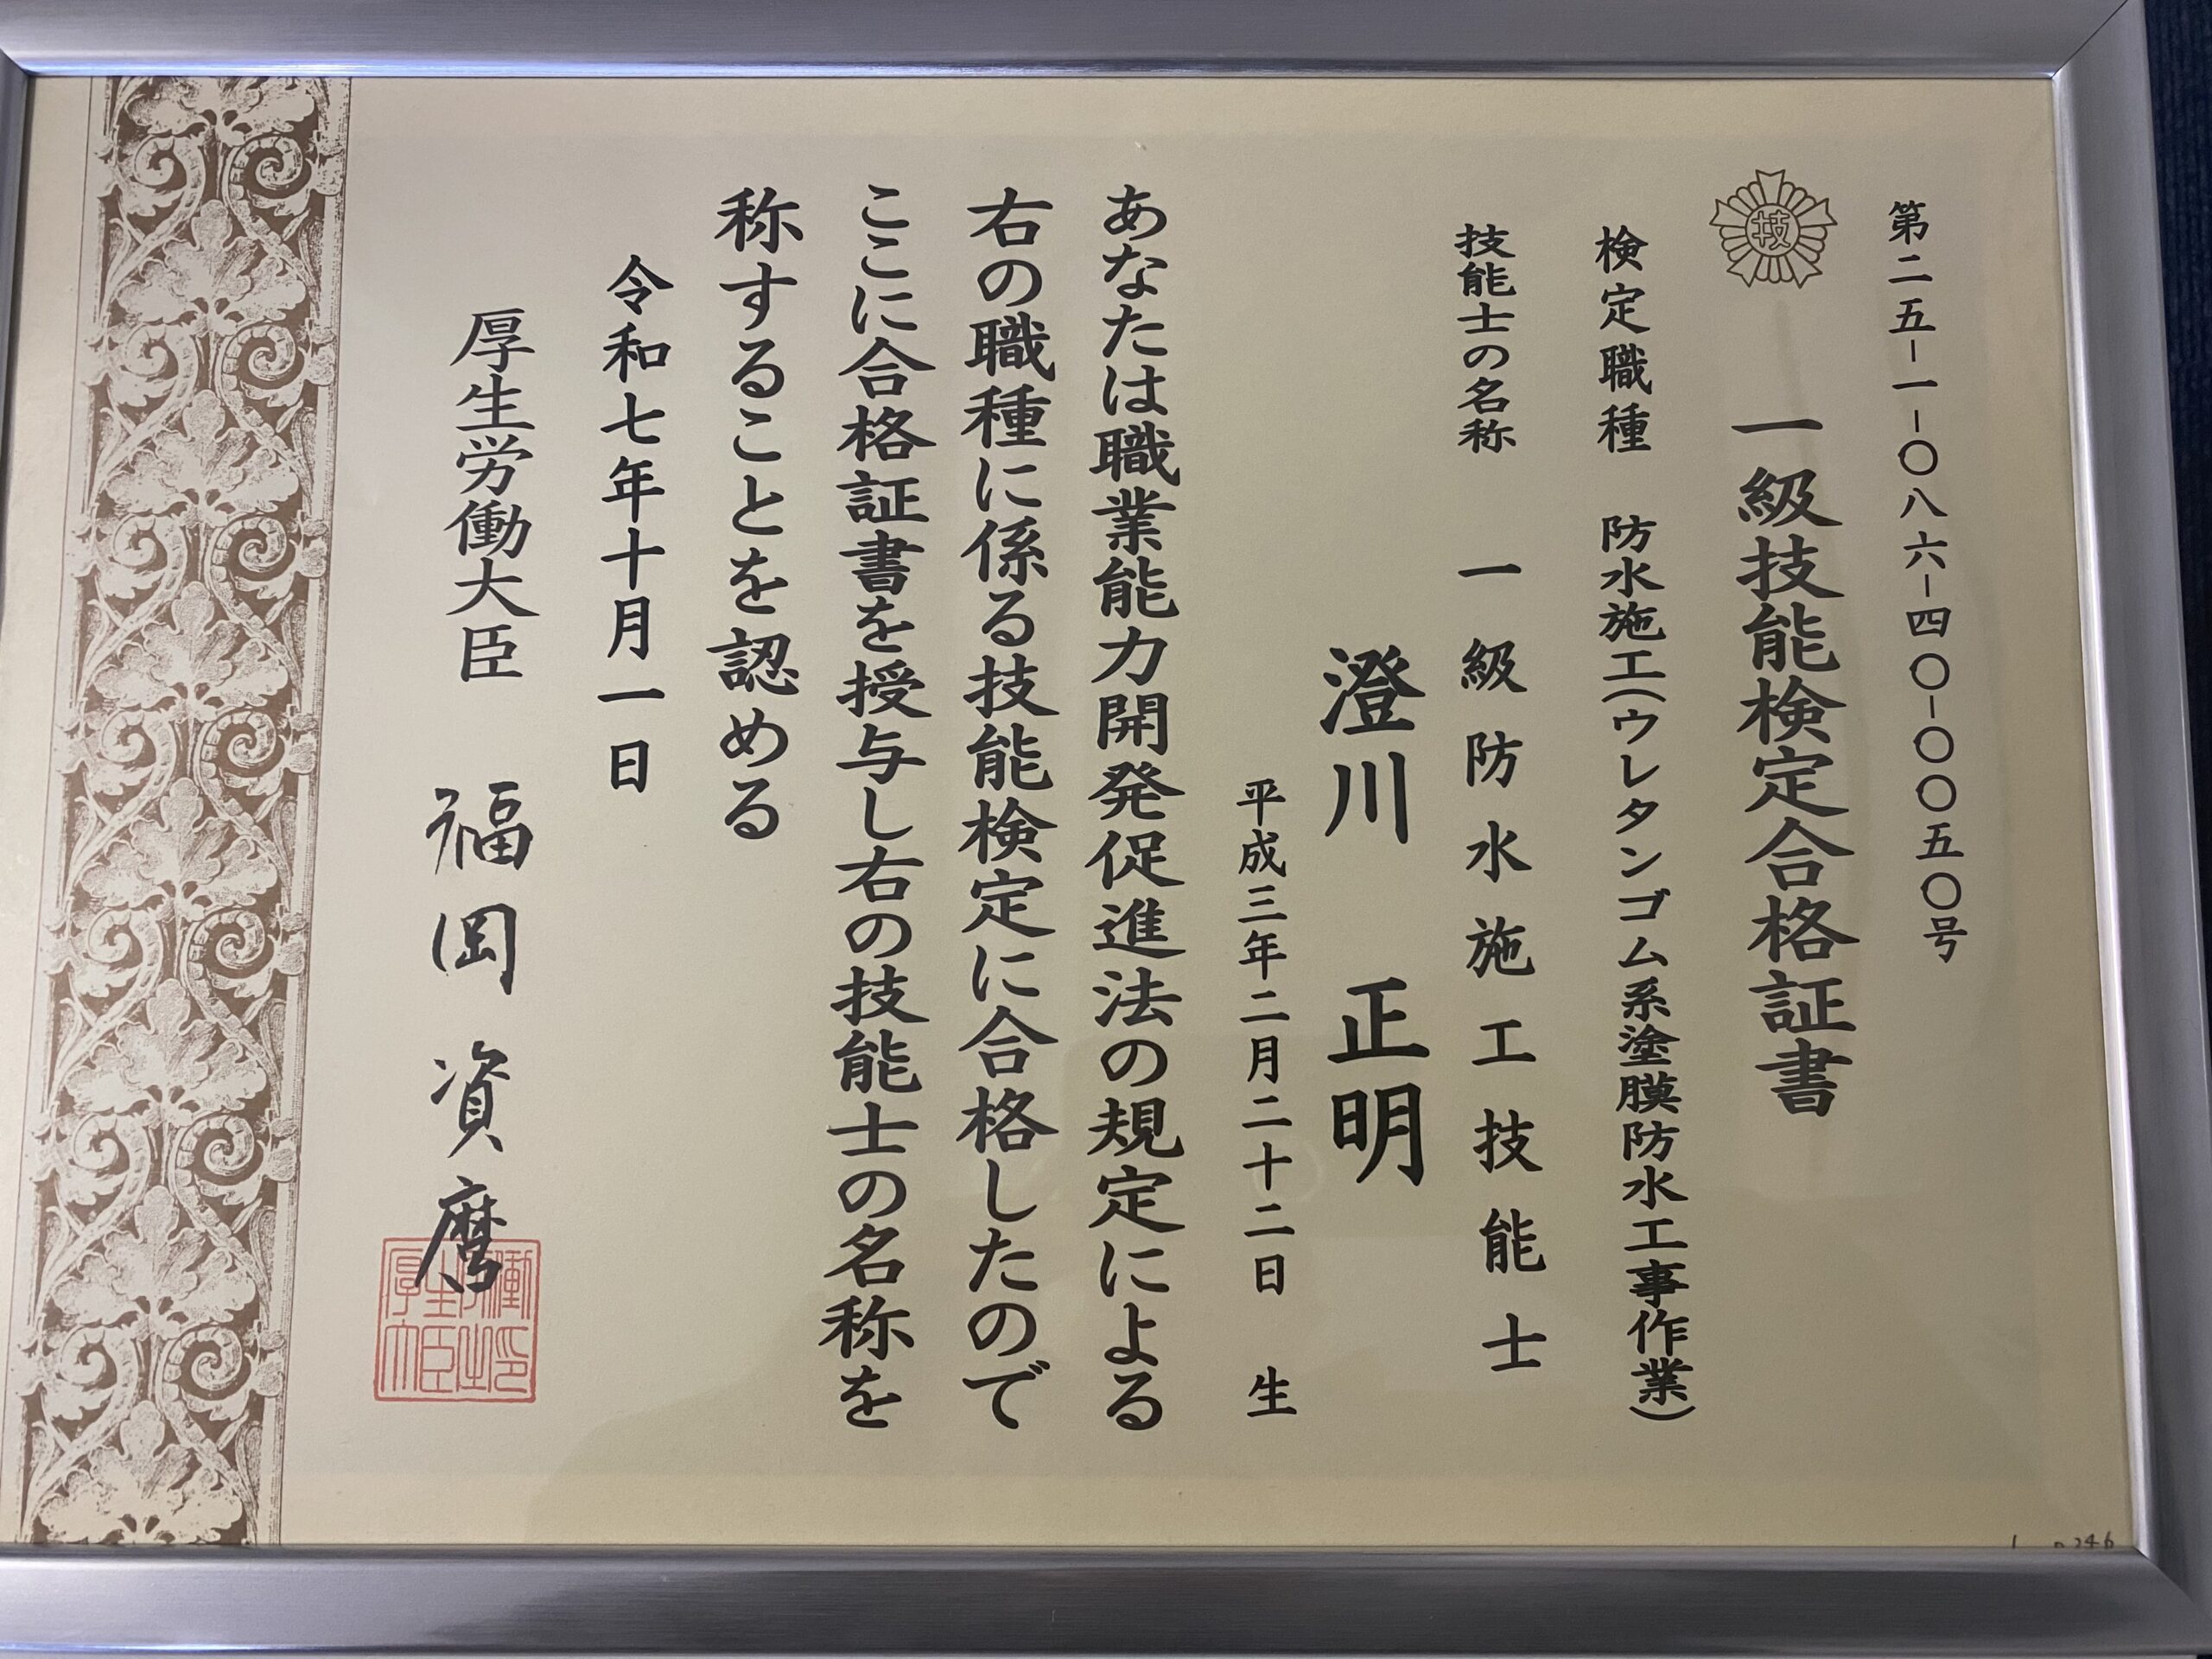 第二五-一-〇八六-四〇-〇〇五〇号
技
一級技能検定合格証書
検定職種 防水施工(ウレタンゴム系塗膜防水工事作業)
技能士の名称 一級防水施工技能士
澄川 正明
平成三年二月二十二日 生
あなたは職業能力開発促進法の規定による
右の職種に係る技能検定に合格したので
ここに合格証書を授与し右の技能士の名称を
称することを認める
令和七年十月一日
厚生労働大臣 福岡資麿
厚生労働大臣之印